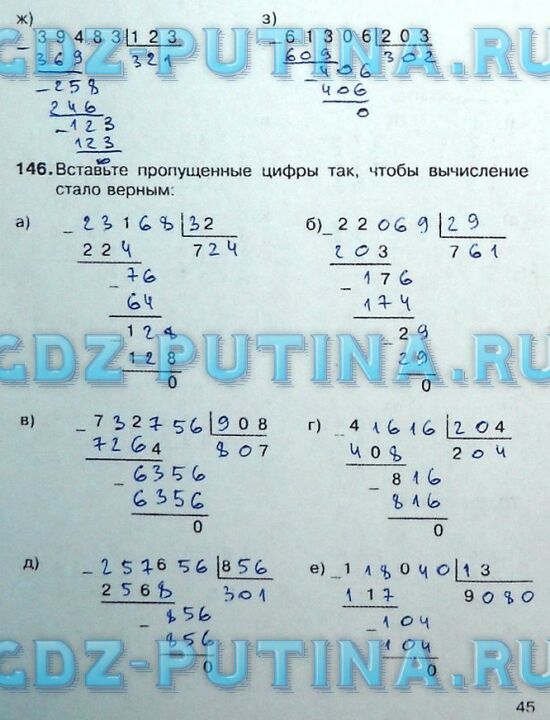 ж)
- 39483 | 123
369 321
- 258
246
- 123
123
0
з)
- 61306 | 203
609 302
- 406
406
0
GDZ-PUTINA.RU
146. Вставьте пропущенные цифры так, чтобы вычисление
стало верным:
а) - 23168 | 32
224 724
- 76
64
128
128
0
б) - 22069 | 29
203 761
- 176
174
- 29
29
0
GDZ-PUTINA.RU
в) - 732756 | 908
7264 807
- 6356
6356
0
г) - 41616 | 204
408 204
- 816
816
0
д) - 257656 | 856
2568 301
- 856
856
0
е) - 118040 | 13
117 9080
- 104
104
0
GDZ-PUTINA.RU
45